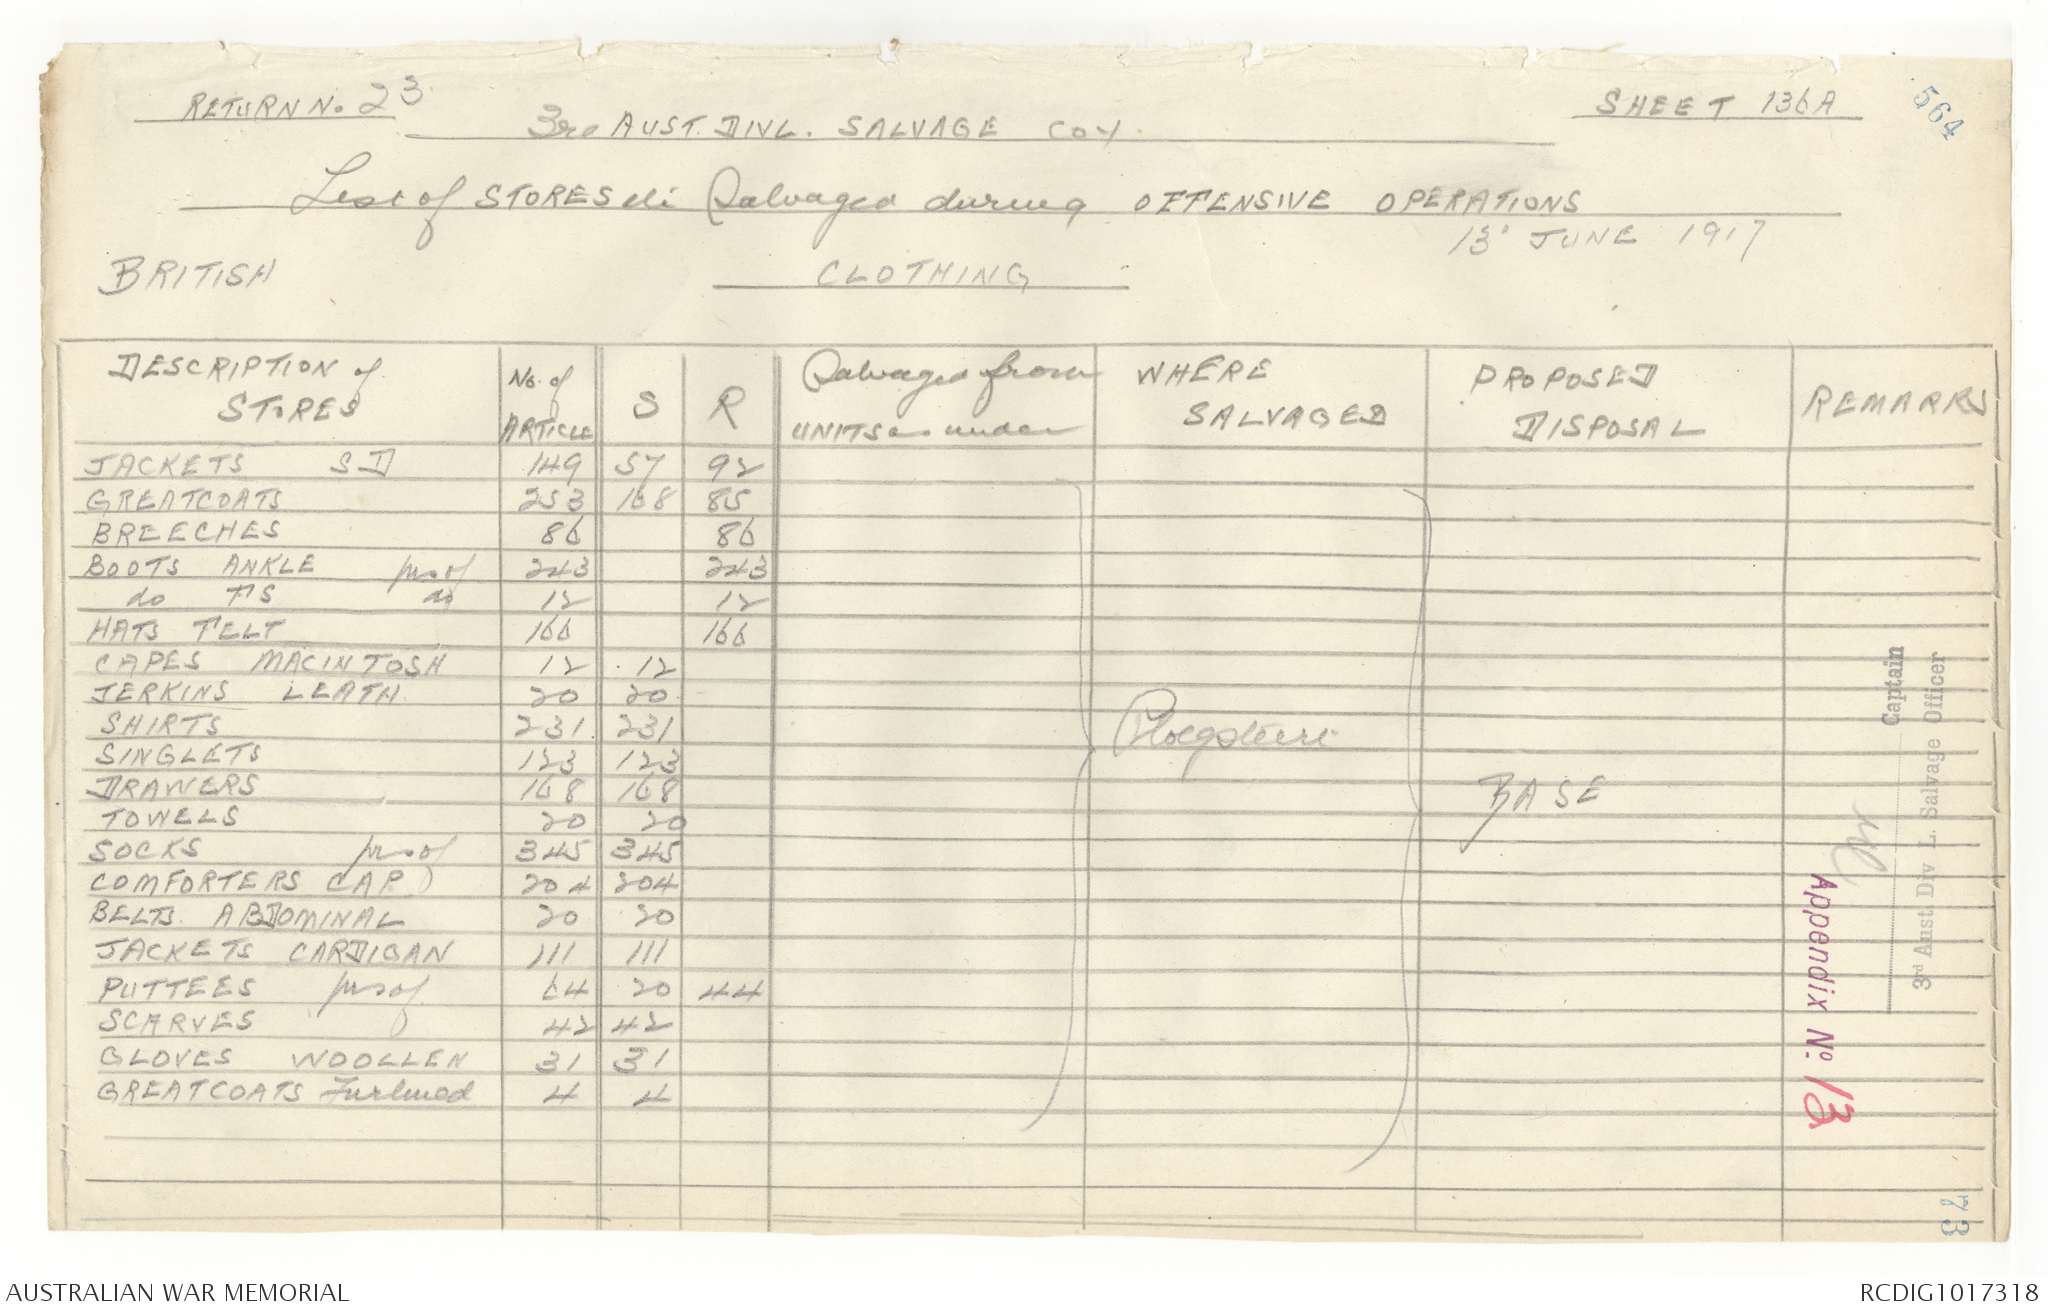 RETURN No. 23
SHEET 136A
564
3rd AUST. DIVL. SALVAGE COY.
List of STORES etc Salvaged during OFFENSIVE OPERATIONS
13' JUNE 1917
BRITISH
CLOTHING
DESCRIPTION of STORES | No. of ARTICLE | S | R | Salvaged from UNITS as under | WHERE SALVAGED | PROPOSED DISPOSAL | REMARKS
JACKETS SD 149 57 92
GREATCOATS 253 168 85
BREECHES 86 86
BOOTS ANKLE prs of 243 243
do FS do 12 12
HATS FELT 166 166
CAPES MACINTOSH 12 12
JERKINS LEATH. 20 20
SHIRTS 231 231
SINGLETS 123 123
DRAWERS 168 168
TOWELS 20 20
SOCKS prs of 345 345
COMFORTERS CAP 204 204
BELTS ABDOMINAL 20 20
JACKETS CARDIGAN 111 111
PUTTEES prs of 64 20 44
SCARVES 42 42
GLOVES WOOLLEN 31 31
GREATCOATS Furlined 4 4
Ploegsteert
BASE
Captain
3rd Aust Div L. Salvage Officer
Appendix No. 13
73
AUSTRALIAN WAR MEMORIAL
RCDIG1017318